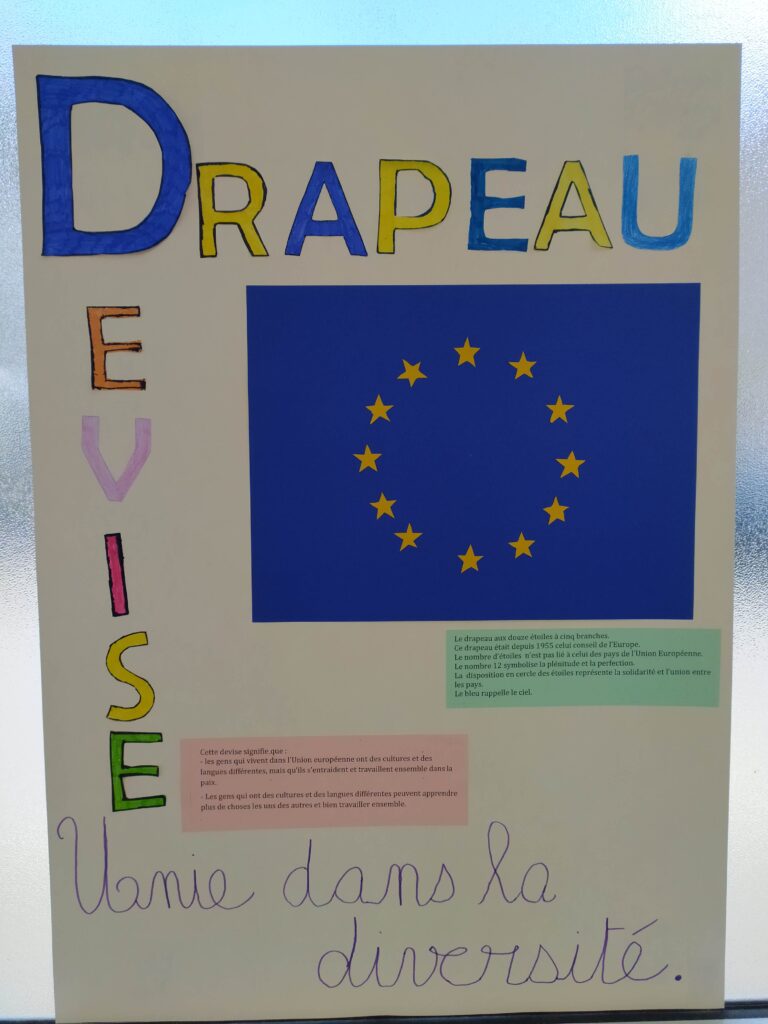 DRAPEAU
DEVISE
Le drapeau aux douze étoiles à cinq branches.
Ce drapeau était depuis 1955 celui conseil de l'Europe.
Le nombre d'étoiles n'est pas lié à celui des pays de l'Union Européenne.
Le nombre 12 symbolise la plénitude et la perfection.
La disposition en cercle des étoiles représente la solidarité et l'union entre
les pays.
Le bleu rappelle le ciel.
Cette devise signifie que :
- les gens qui vivent dans l'Union européenne ont des cultures et des
langues différentes, mais qu'ils s'entraident et travaillent ensemble dans la
paix.
- Les gens qui ont des cultures et des langues différentes peuvent apprendre
plus de choses les uns des autres et bien travailler ensemble.
Unie dans la
diversité.